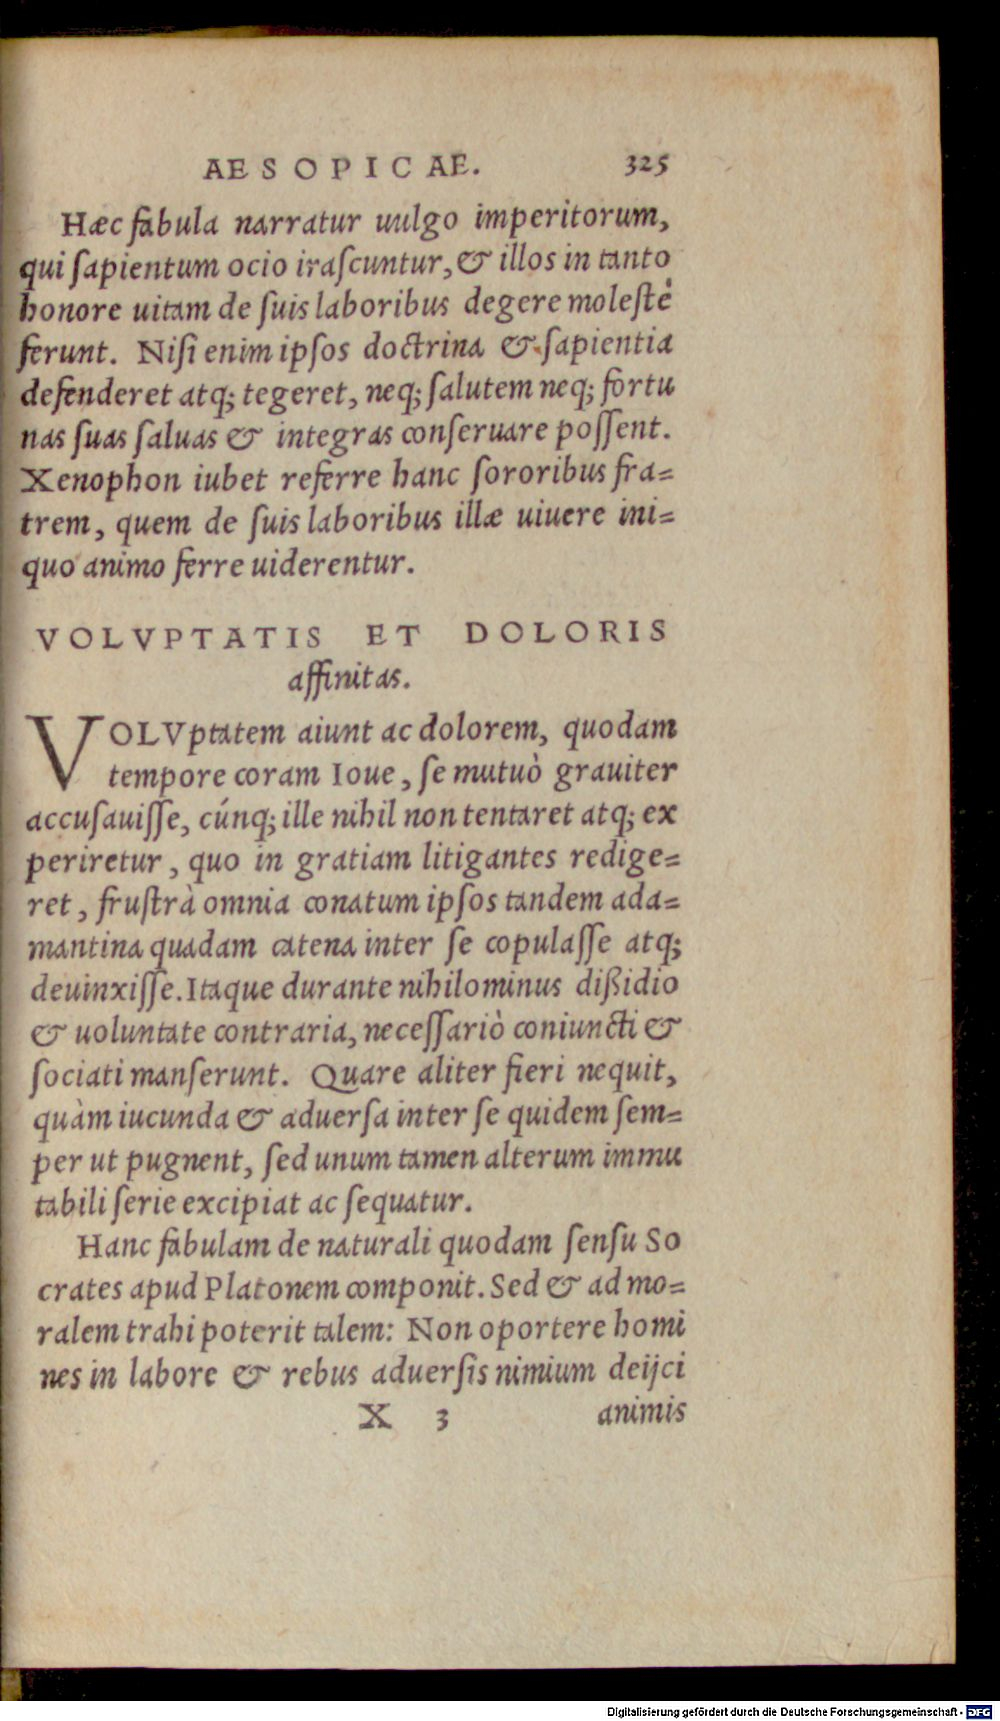 AESOPICAE. 325
Hæc fabula narratur uulgo imperitorum,
qui ſapientum ocio iraſcuntur, & illos in tanto
honore uitam de ſuis laboribus degere moleſtè
ferunt. Niſi enim ipſos doctrina & ſapientia
defenderet atq; tegeret, neq; ſalutem neq; fortu
nas ſuas ſaluas & integras conſeruare poſſent.
Xenophon iubet referre hanc ſororibus fra=
trem, quem de ſuis laboribus illæ uiuere ini=
quo animo ferre uiderentur.
VOLVPTATIS ET DOLORIS
affinitas.
VOLVptatem aiunt ac dolorem, quodam
tempore coram Ioue, ſe mutuò grauiter
accuſauiſſe, cúnq; ille nihil non tentaret atq; ex
periretur, quo in gratiam litigantes redige=
ret, fruſtrà omnia conatum ipſos tandem ada=
mantina quadam catena inter ſe copulaſſe atq;
deuinxiſſe. Itaque durante nihilominus dißidio
& uoluntate contraria, neceſſariò coniuncti &
ſociati manſerunt. Quare aliter fieri nequit,
quàm iucunda & aduerſa inter ſe quidem ſem=
per ut pugnent, ſed unum tamen alterum immu
tabili ſerie excipiat ac ſequatur.
Hanc fabulam de naturali quodam ſenſu So
crates apud Platonem componit. Sed & ad mo=
ralem trahi poterit talem: Non oportere homi
nes in labore & rebus aduerſis nimium deijci
X 3 animis
Digitalisierung gefördert durch die Deutsche Forschungsgemeinschaft - DFG